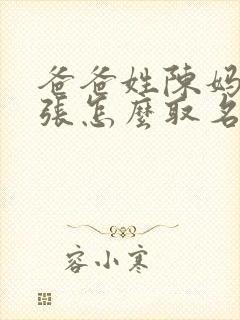 爸爸姓陳媽
張怎麼取名
容小寒